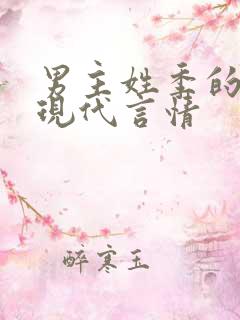 男主姓季的
現代言情
醉寒玉